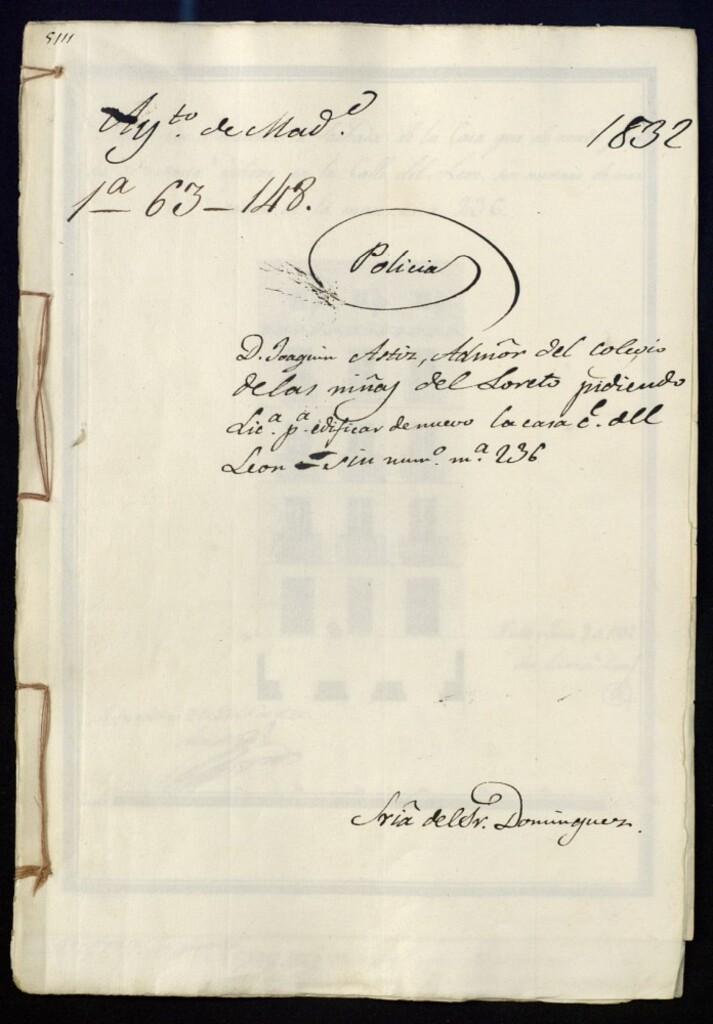 5111
Ayto. de Madd.
1832
1ª 63-148.
Policia
D. Joaquin Astiz, Admõr del colegio
delas niñas del Loreto pidiendo
Lica. pª. edificar de nuevo la casa cl. dell
Leon - sin numo. mª. 236
Sriã del Sr. Dominguez.